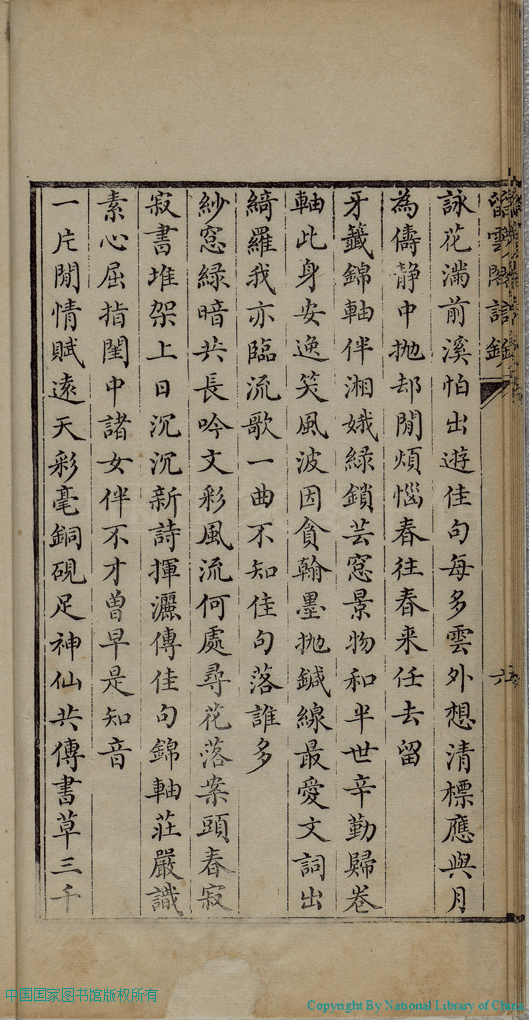 留雲閣詩鈔
六
詠花滿前溪怕出遊佳句每多雲外想清標應與月
為儔靜中拋却閒煩惱春往春來任去留
牙籤錦軸伴湘娥綠鎖芸窓景物和半世辛勤歸卷
軸此身安逸笑風波因貪翰墨拋鍼線最愛文詞出
綺羅我亦臨流歌一曲不知佳句落誰多
紗窓綠暗共長吟文彩風流何處尋花落案頭春寂
寂書堆架上日沉沉新詩揮灑傳佳句錦軸莊嚴識
素心屈指閨中諸女伴不才曾早是知音
一片閒情賦遠天彩毫銅硯足神仙共傳書草三千
中国国家图书馆版权所有
Copyright By National Library of China